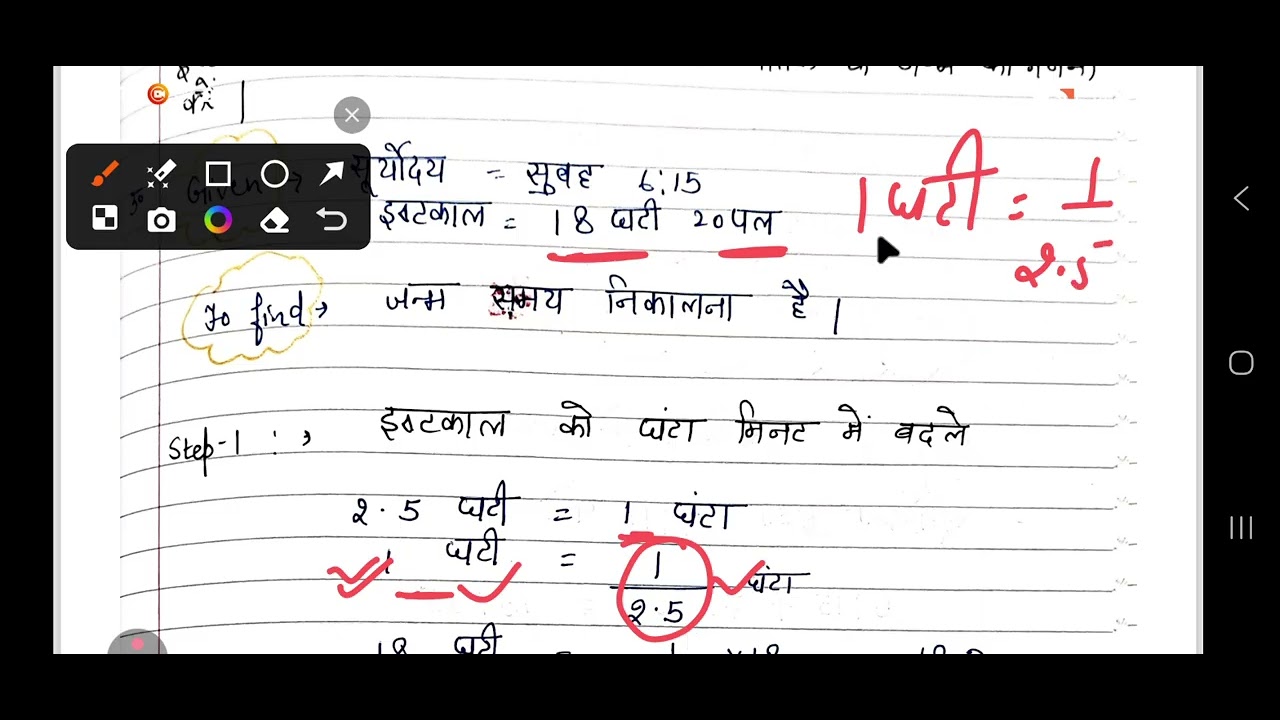 सूर्योदय = सुबह 6:15
1 घटी = 1
2.5
Given →
इष्टकाल = 18 घटी 20 पल
To find → जन्म समय निकालना है |
Step-1 : → इष्टकाल को घंटा मिनट में बदले
2.5 घटी = 1 घंटा
1 घटी = 1
2.5 घंटा
18 घटी =